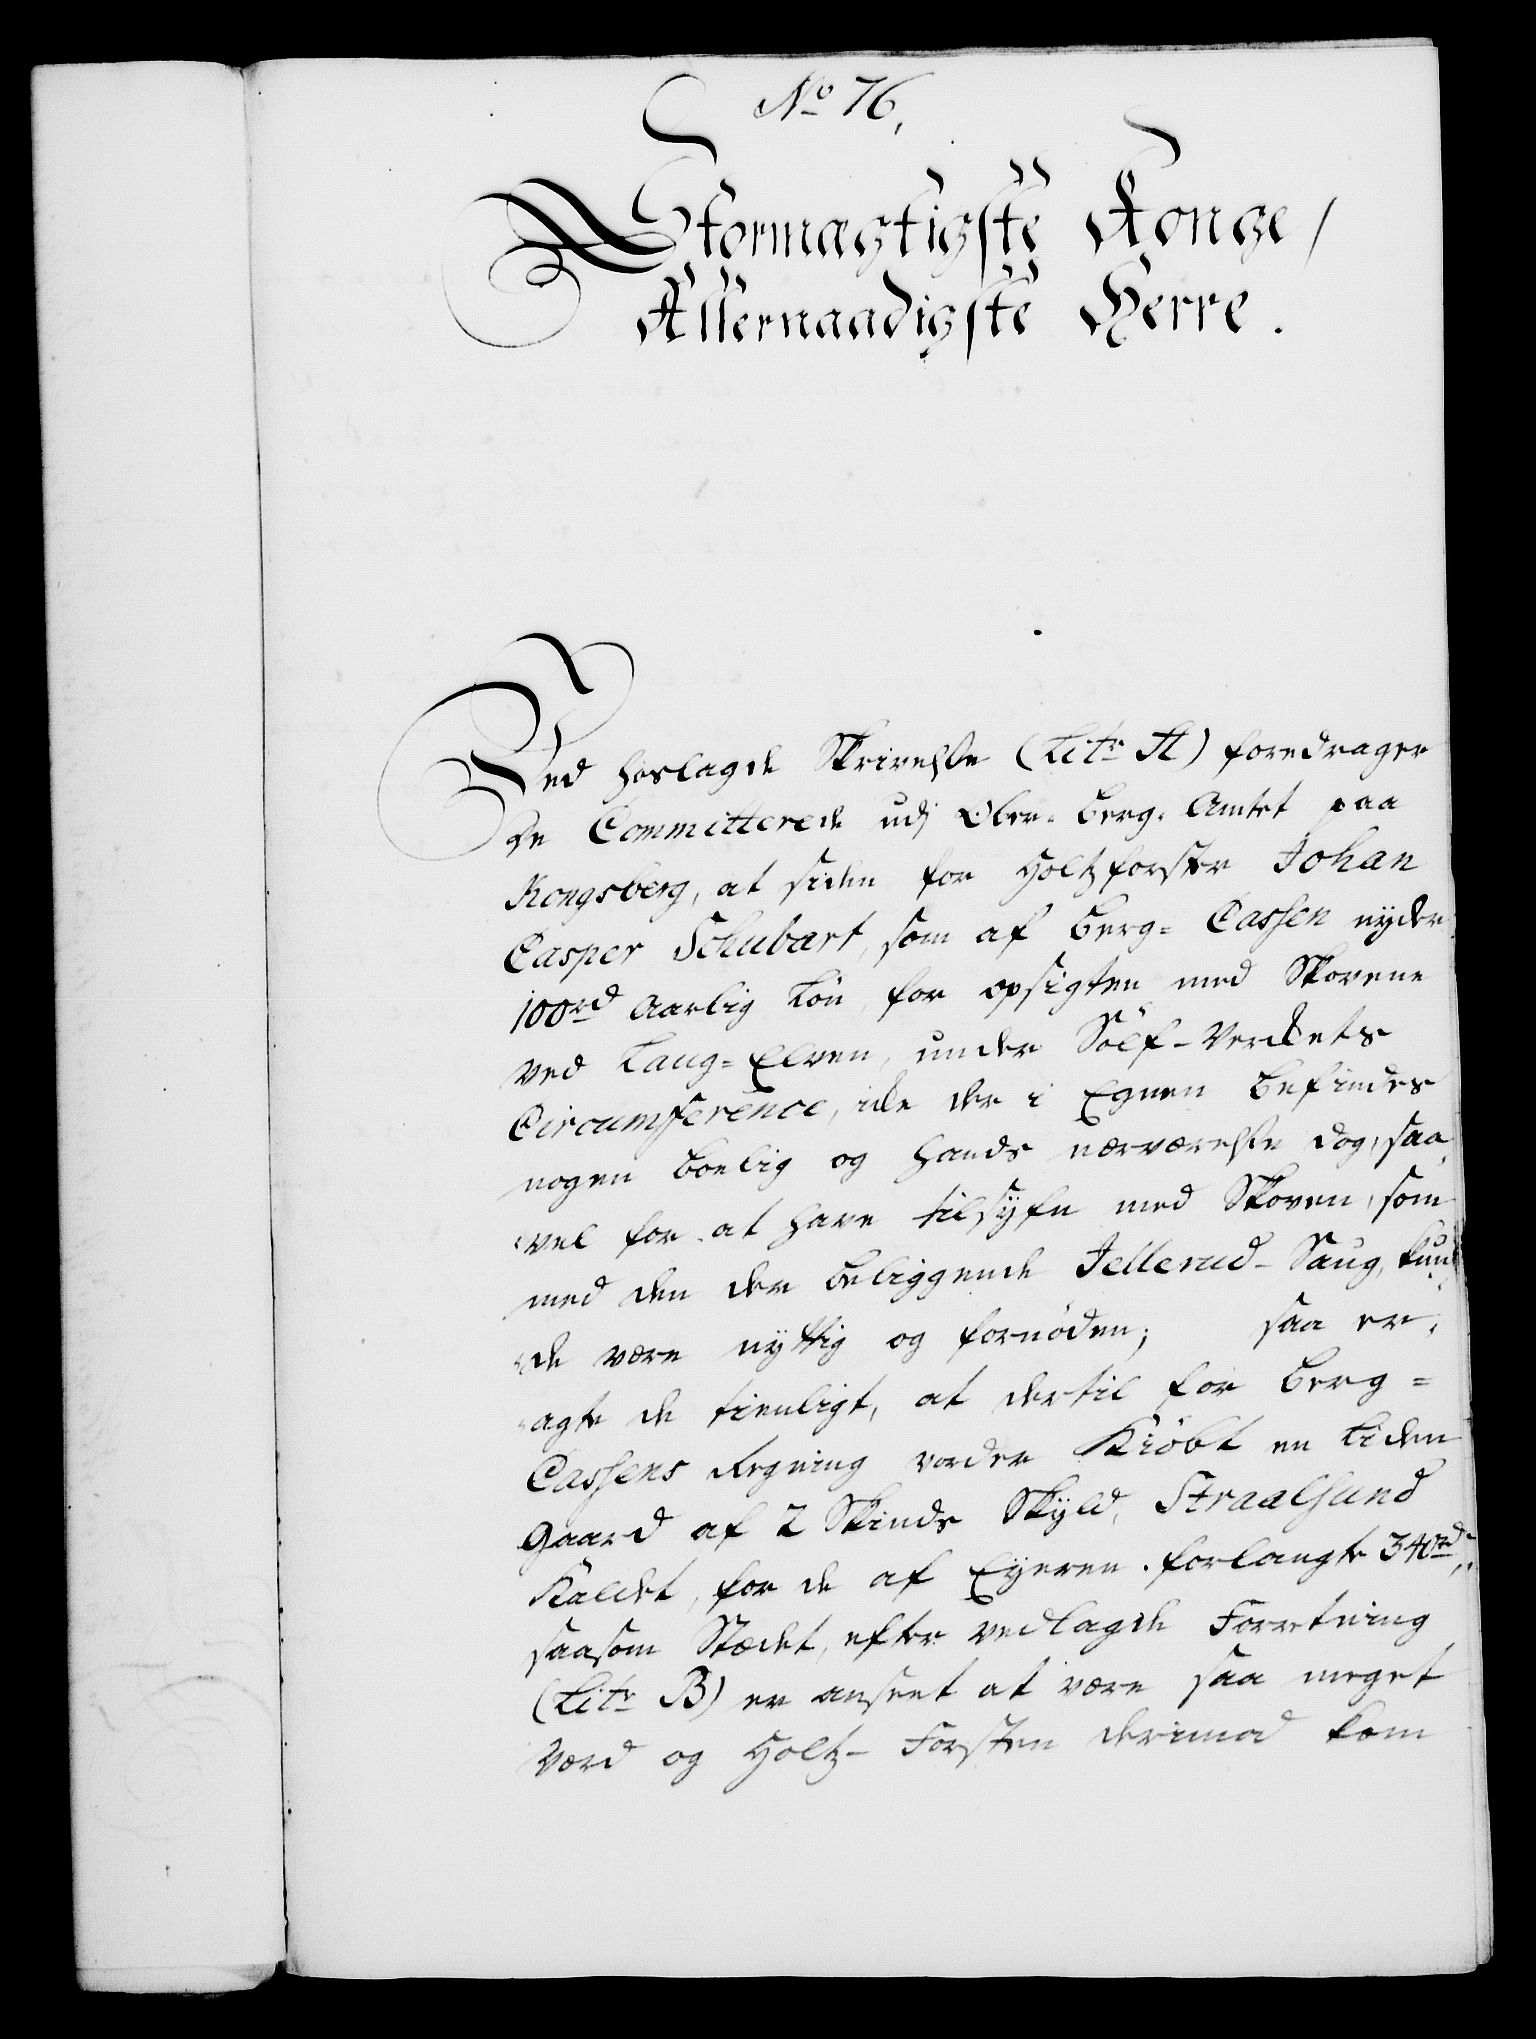 No 76,
Stormægtigste Konge,
Allernaadigste Herre.
Ved hoslagde Skrivelse (Litr A) foredrager
de Committerede udj Ober-Berg-Amtet paa
Kongsberg, at siden for Holtzforster Johan
Casper Schubart, som af Berg-Cassen nyder
100rd aarlig Løn, for opsigten med Skovene
ved Laug-Elven, under Sölf-Verkets
Circumference, icke der i Egnen befindes
nogen boelig og hands nærværelse dog, saa
vel for at have tilsyfn med Skoven, som
med den der beliggende Jellerud-Saug, kun
de være nyttig og fornöden; saa er,
agte de tienligt, at dertil for Berg-
Cassens Regning vorder Kiöbt en liden
Gaard af 2 Skinds Skyld, Straalsund
Kaldet, for de af Eyeren forlangte 340rd,
saasom Stædet, efter vedlagde Forretning
(Litr B) er anseet at være saa meget
værd og Holtz-Forsteren derimod kom